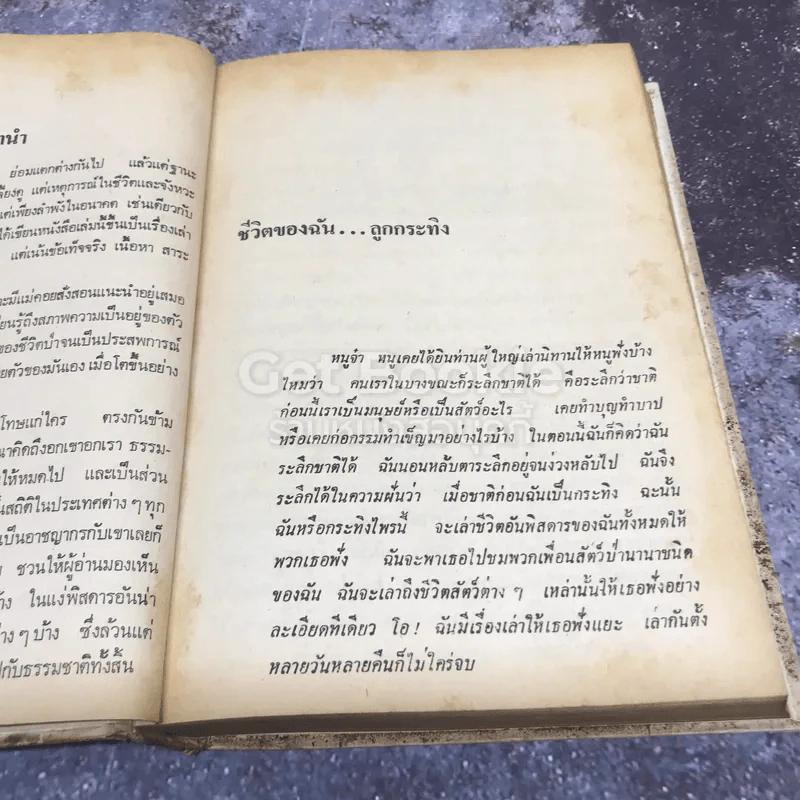 นำ
ย่อมแตกต่างกันไป แล้วแต่ฐานะ
แต่เหตุการณ์ในชีวิตและจังหวะ
แต่เพียงลำพังในอนาคต เช่นเดียวกับ
ได้เขียนหนังสือเล่มนี้ขึ้นเป็นเรื่องเล่า
แต่เน้นข้อเท็จจริง เนื้อหา สาระ
มีแม่คอยสั่งสอนแนะนำอยู่เสมอ
รู้ถึงสภาพความเป็นอยู่ของตัว
ของชีวิตป่าจนเป็นประสพการณ์
ตัวของมันเอง เมื่อโตขึ้นอย่าง
โทษแก่ใคร ตรงกันข้าม
คิดถึงอกเขาอกเรา ธรรม-
ให้หมดไป และเป็นส่วน
สถิติในประเทศต่าง ๆ ทุก
เป็นอาชญากรกับเขาเลยก็
ชวนให้ผู้อ่านมองเห็น
ในแง่พิสดารอันน่า
ๆ บ้าง ซึ่งล้วนแต่
กับธรรมชาติทั้งสิ้น
ชีวิตของฉัน...ลูกกระทิง
หนูจ๋า หนูเคยได้ยินท่านผู้ใหญ่เล่านิทานให้หนูฟังบ้าง
ไหมว่า คนเราในบางขณะก็ระลึกชาติได้ คือระลึกว่าชาติ
ก่อนนี้เราเป็นมนุษย์หรือเป็นสัตว์อะไร เคยทำบุญทำบาป
หรือเคยก่อกรรมทำเข็ญมาอย่างไรบ้าง ในตอนนี้ฉันก็คิดว่าฉัน
ระลึกชาติได้ ฉันนอนหลับตาระลึกอยู่จนง่วงหลับไป ฉันจึง
ระลึกได้ในความฝันว่า เมื่อชาติก่อนฉันเป็นกระทิง ฉะนั้น
ฉันหรือกระทิงไพรนี้ จะเล่าชีวิตอันพิสดารของฉันทั้งหมดให้
พวกเธอฟัง ฉันจะพาเธอไปชมพวกเพื่อนสัตว์ป่านานาชนิด
ของฉัน ฉันจะเล่าถึงชีวิตสัตว์ต่าง ๆ เหล่านั้นให้เธอฟังอย่าง
ละเอียดทีเดียว โอ! ฉันมีเรื่องเล่าให้เธอฟังแยะ เล่ากันตั้ง
หลายวันหลายคืนก็ไม่ใคร่จบ
Get Bookie